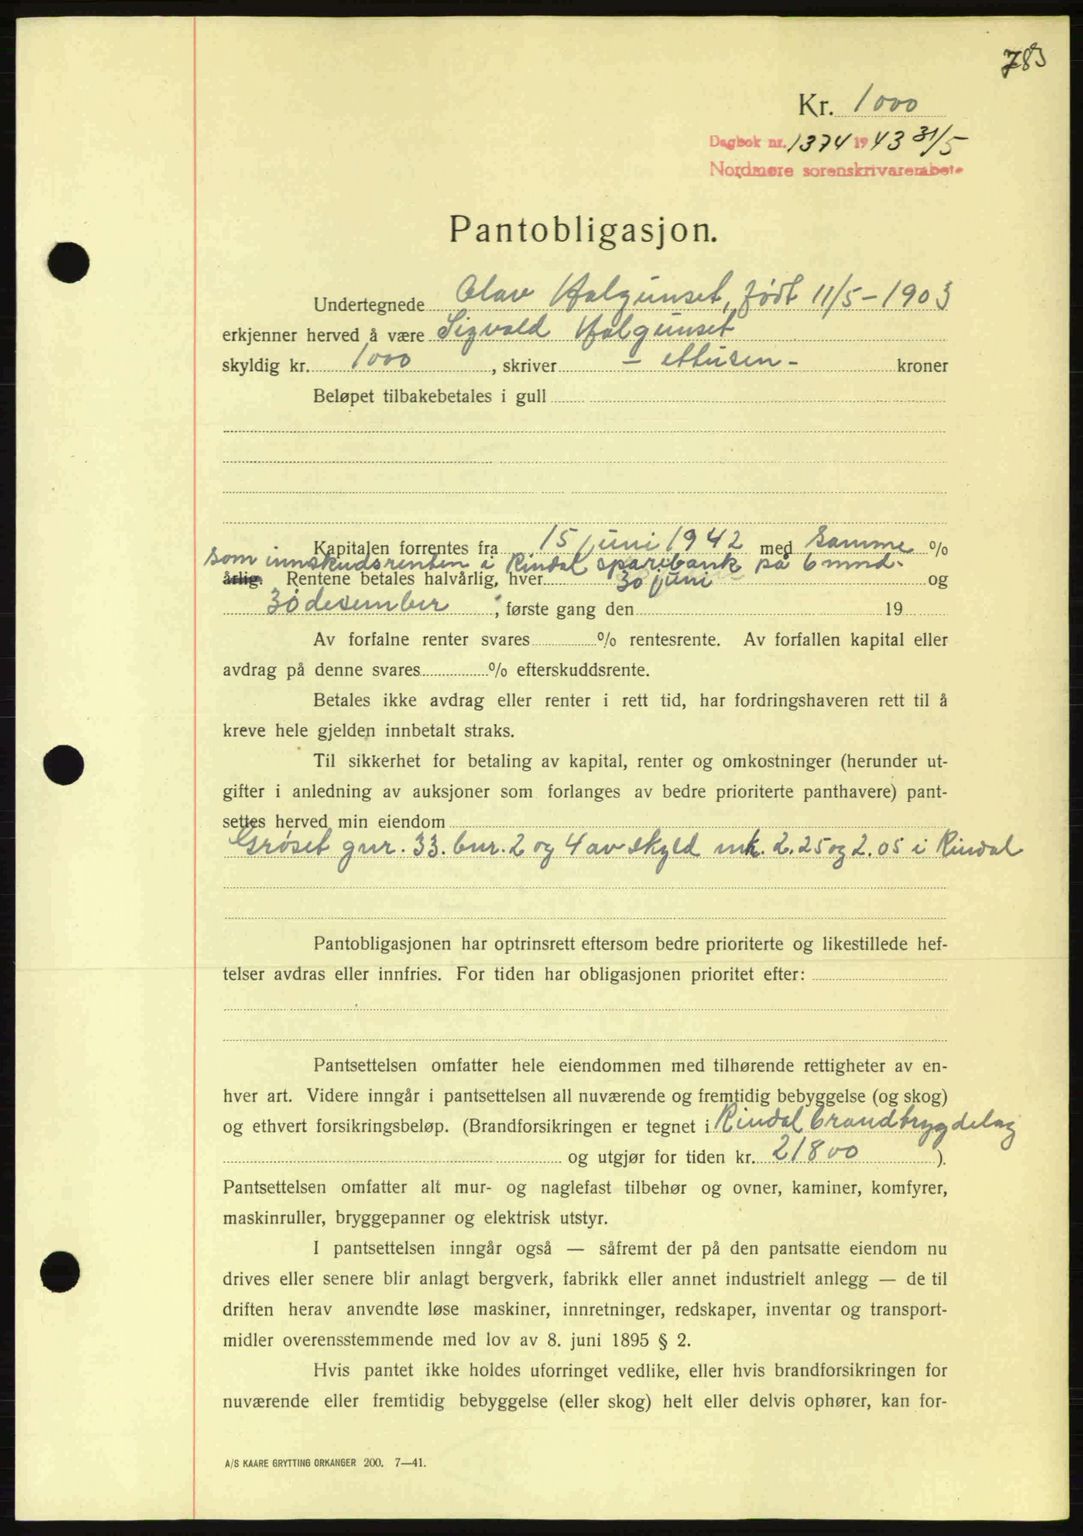 783
Kr. 1000
Dagbok nr. 1374 1943 31/5
Nordmøre sorenskrivarembete
Pantobligasjon.
Undertegnede Olav Halgunset, født 11/5-1903
erkjenner herved å være Sigvald Halgunset
skyldig kr. 1000, skriver - ettusen - kroner
Beløpet tilbakebetales i gull
Kapitalen forrentes fra 15 juni 1942 med samme %
som innskudsrenten i Rindal sparebank på 6 mnd.
årlig. Rentene betales halvårlig, hver 30 juni og
30 desember, første gang den 19
Av forfalne renter svares % rentesrente. Av forfallen kapital eller
avdrag på denne svares % efterskuddsrente.
Betales ikke avdrag eller renter i rett tid, har fordringshaveren rett til å
kreve hele gjelden innbetalt straks.
Til sikkerhet for betaling av kapital, renter og omkostninger (herunder ut-
gifter i anledning av auksjoner som forlanges av bedre prioriterte panthavere) pant-
settes herved min eiendom
Grøset gnr. 33. bnr. 2 og 4 av skyld mk. 2.25 og 2.05 i Rindal
Pantobligasjonen har optrinsrett eftersom bedre prioriterte og likestillede hef-
telser avdras eller innfries. For tiden har obligasjonen prioritet efter:
Pantsettelsen omfatter hele eiendommen med tilhørende rettigheter av en-
hver art. Videre inngår i pantsettelsen all nuværende og fremtidig bebyggelse (og skog)
og ethvert forsikringsbeløp. (Brandforsikringen er tegnet i Rindal brandtrygdelag
og utgjør for tiden kr. 21800 ).
Pantsettelsen omfatter alt mur- og naglefast tilbehør og ovner, kaminer, komfyrer,
maskinruller, bryggepanner og elektrisk utstyr.
I pantsettelsen inngår også — såfremt der på den pantsatte eiendom nu
drives eller senere blir anlagt bergverk, fabrikk eller annet industrielt anlegg — de til
driften herav anvendte løse maskiner, innretninger, redskaper, inventar og transport-
midler overensstemmende med lov av 8. juni 1895 § 2.
Hvis pantet ikke holdes uforringet vedlike, eller hvis brandforsikringen for
nuværende eller fremtidig bebyggelse (eller skog) helt eller delvis ophører, kan for-
A/S KAARE GRYTTING ORKANGER 200. 7—41.